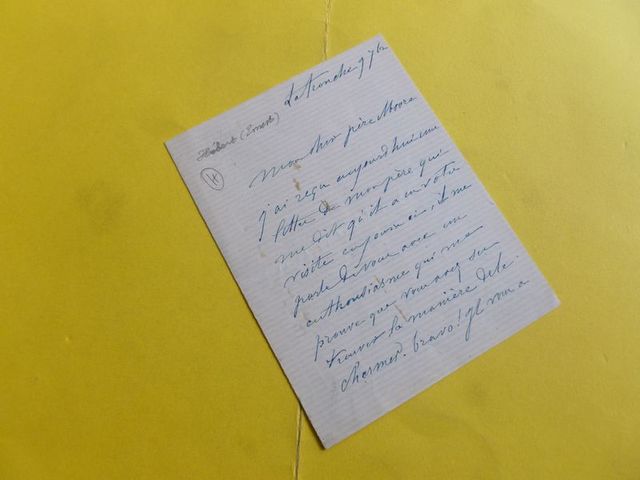 La tronche 9 7bre
Hébert (Ernest)
H
Mon cher père Moore
J'ai reçu aujourd'hui une
lettre de mon père qui
me dit qu'il a eu votre
visite ces jours ci, il me
parle de vous avec un
enthousiasme qui me
prouve que vous avez su
trouver la manière de le
charmer. bravo! Il m'a